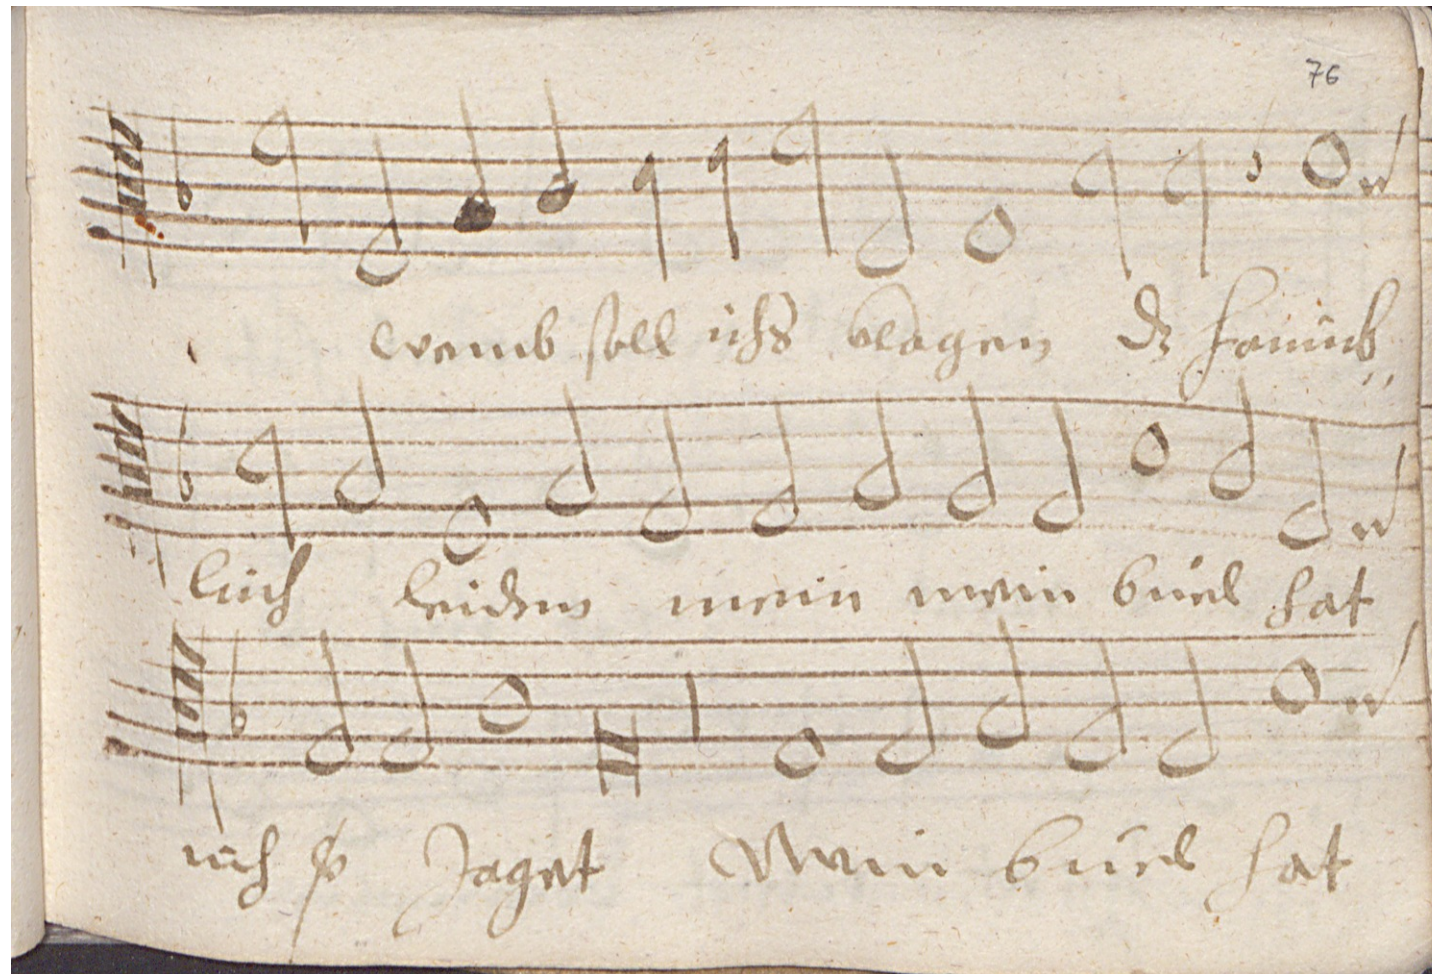 76
wemb soll ichs klagen dz haimb„
lich leiden mein mein buel hat
mich Jaget Mein buel hat